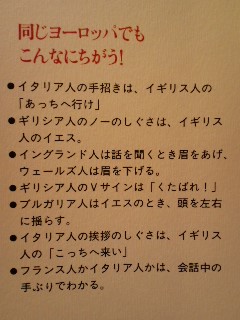 同じヨーロッパでも
こんなにちがう!
●イタリア人の手招きは、イギリス人の
「あっちへ行け」
●ギリシア人のノーのしぐさは、イギリス
人のイエス。
●イングランド人は話を聞くとき眉をあげ、
ウェールズ人は眉を下げる。
●ギリシア人のVサインは「くたばれ!」
●ブルガリア人はイエスのとき、頭を左右
に揺らす。
●イタリア人の挨拶のしぐさは、イギリス
人の「こっちへ来い」
●フランス人かイタリア人かは、会話中の
手ぶりでわかる。